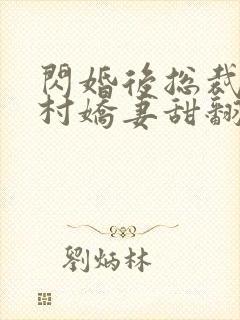 閃婚後總裁
村嬌妻甜翻
劉炳林